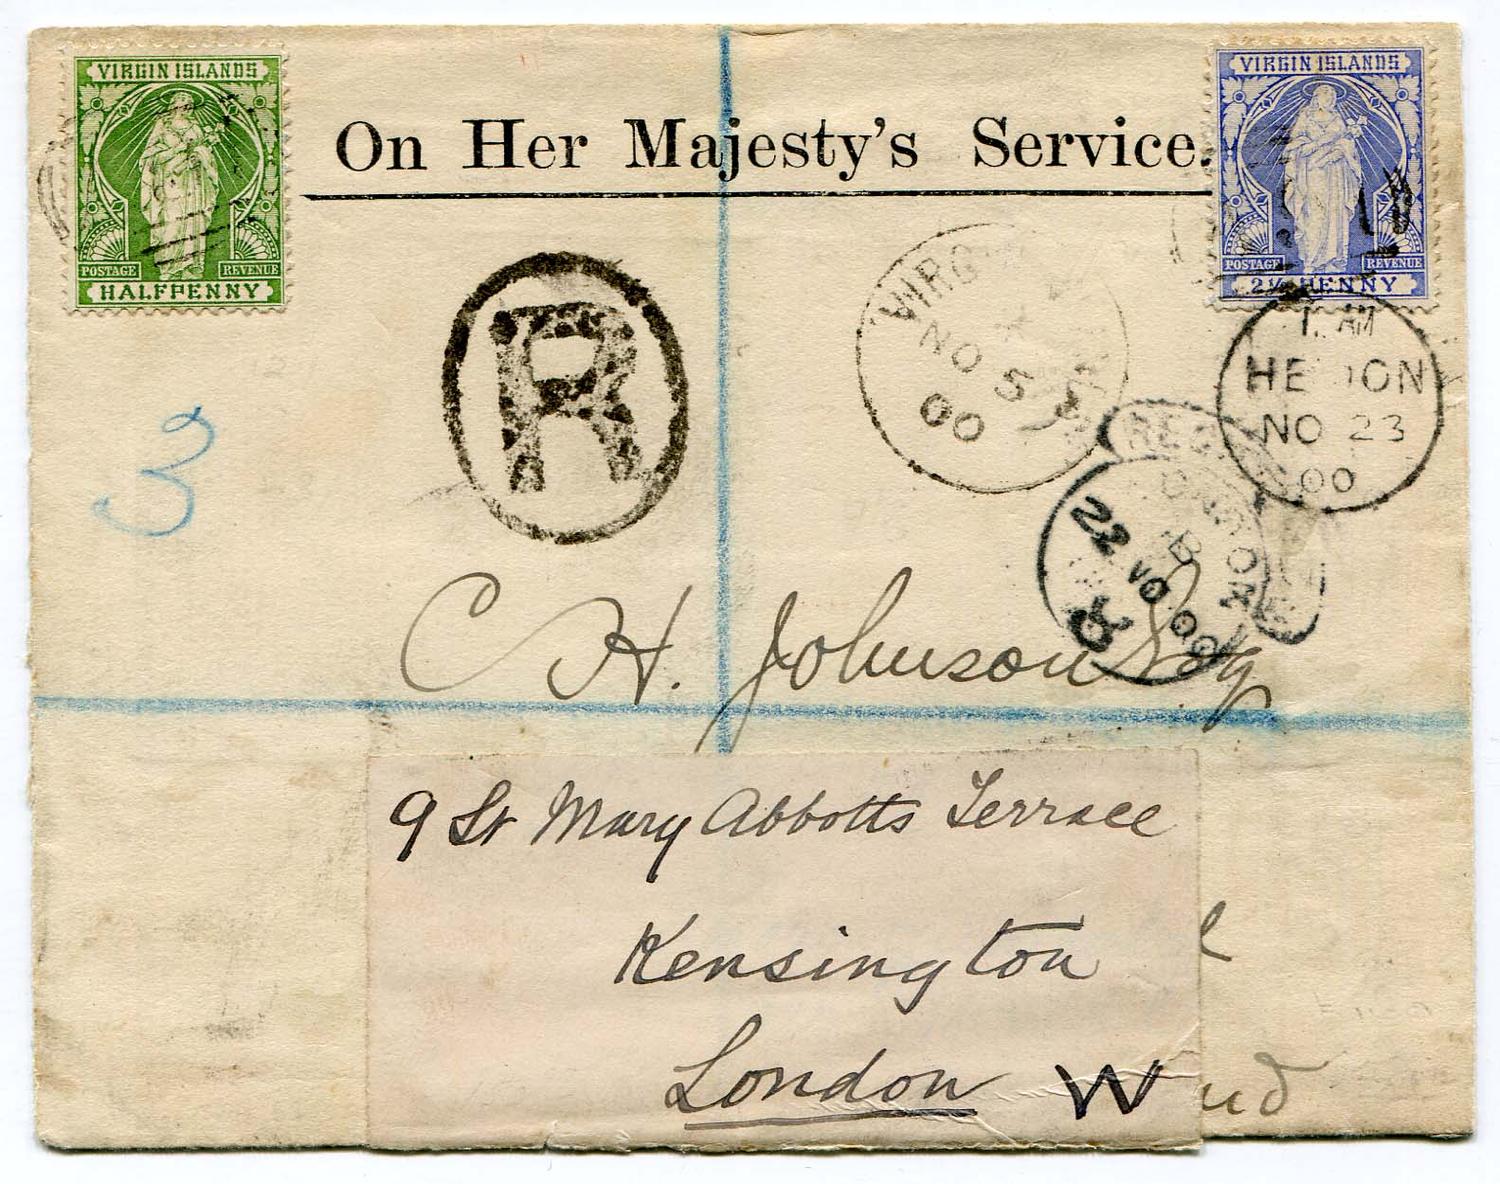 VIRGIN ISLANDS
POSTAGE REVENUE
HALFPENNY
On Her Majesty's Service.
VIRGIN ISLANDS
POSTAGE REVENUE
2½ PENNY
R
3
NO 5
00
AM
NO 23
00
22 NO 00
C H. Johnson Esq
9 St Mary Abbotts Terrace
Kensington
London W